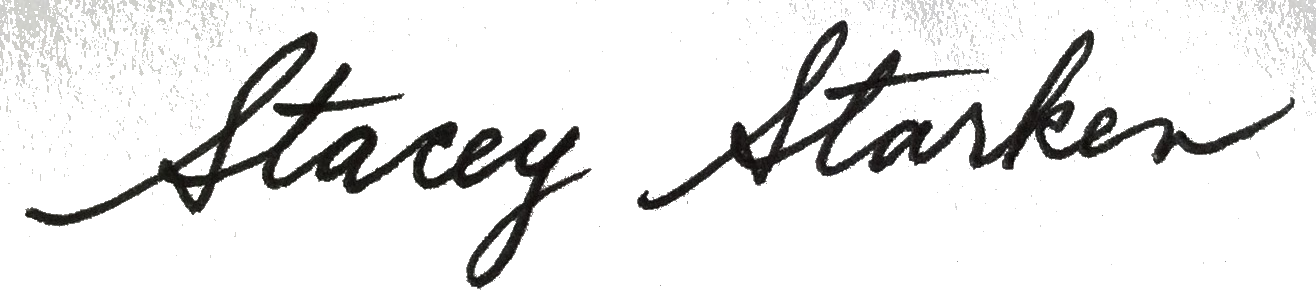 Stacey Starken